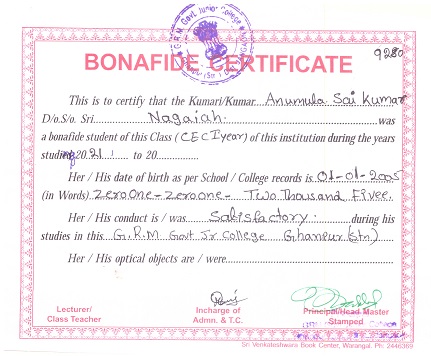 G.R.M. Govt. Junior College
9280
BONAFIDE CERTIFICATE
This is to certify that the Kumari/Kumar Anumula Sai Kumar
D/o.S/o. Sri Nagaiah. was
a bonafide student of this Class (CEC I year) of this institution during the years
studying 2021 to 20............
Her / His date of birth as per School / College records is 01-01-2005
(in Words) Zero One - Zero one - Two Thousand Fivee.
Her / His conduct is / was Satisfactory. during his
studies in this G.R.M Govt Jr College Ghanpur (Stn)
Her / His optical objects are / were
Lecturer/
Class Teacher
Incharge of
Admn. & T.C.
Principal/Head Master
Stamped
Sri Venkateshwara Book Center, Warangal. Ph: 2446369